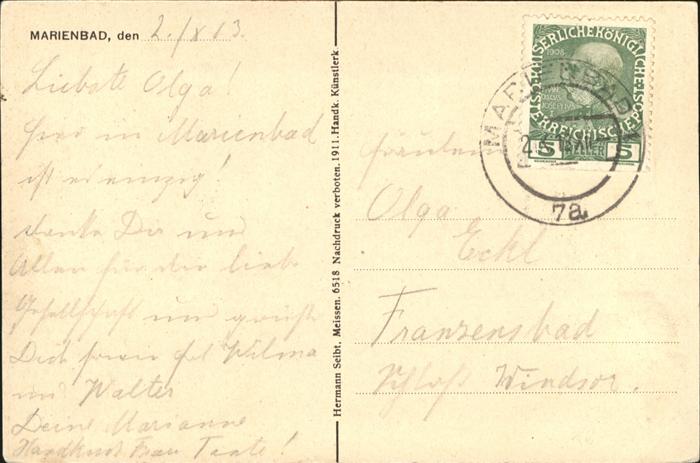 MARIENBAD, den 2./X 13.
Liebste Olga!
hier in Marienbad
ist es einzig!
danke Dir und
Allen für die liebe
Gesellschaft und
Dich Wilma
und Walter
Deine Marianne
Handkuss Frau Tante!
Hermann Seibt, Meissen. 6518 Nachdruck verboten. 1911. Handk. Künstlerk.
KAISERLICHE KÖNIGLICHE
ÖSTERREICHISCHE POST
1908
5 HELLER 5
MARIENBAD
7a
Fräulein
Olga
Eckl
Franzensbad
Schloß Windsor.